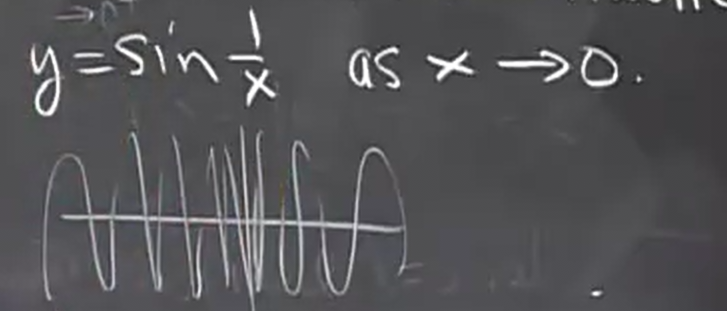 y = sin 1/x as x → 0.